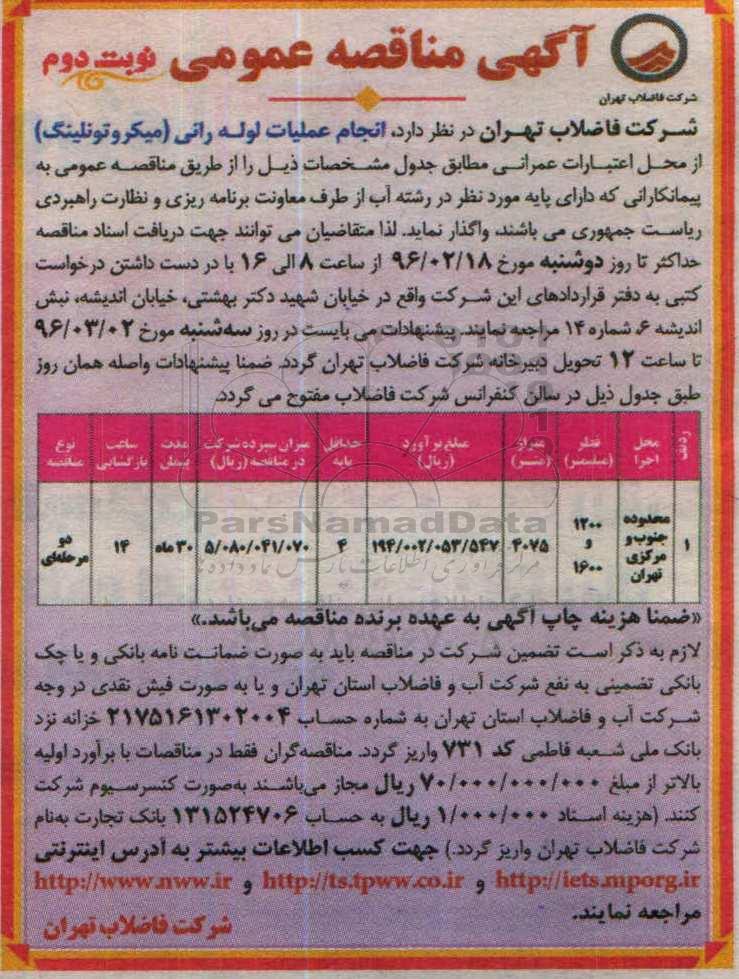 آگهی مناقصه عمومی نوبت دوم
شرکت فاضلاب تهران
شرکت فاضلاب تهران در نظر دارد، انجام عملیات لوله رانی (میکروتونلینگ)
از محل اعتبارات عمرانی مطابق جدول مشخصات ذیل را از طریق مناقصه عمومی به
پیمانکارانی که دارای پایه مورد نظر در رشته آب از طرف معاونت برنامه ریزی و نظارت راهبردی
ریاست جمهوری می باشند، واگذار نماید. لذا متقاضیان می توانند جهت دریافت اسناد مناقصه
حداکثر تا روز دوشنبه مورخ ۹۶/۰۲/۱۸ از ساعت ۸ الی ۱۶ با در دست داشتن درخواست
کتبی به دفتر قراردادهای این شرکت واقع در خیابان شهید دکتر بهشتی، خیابان اندیشه، نبش
اندیشه ۶، شماره ۱۴ مراجعه نمایند. پیشنهادات می بایست در روز سه‌شنبه مورخ ۹۶/۰۳/۰۲
تا ساعت ۱۲ تحویل دبیرخانه شرکت فاضلاب تهران گردد. ضمنا پیشنهادات واصله همان روز
طبق جدول ذیل در سالن کنفرانس شرکت فاضلاب مفتوح می گردد.
ردیف | محل اجرا | قطر (میلیمتر) | متراژ (متر) | مبلغ برآورد (ریال) | حداقل پایه | میزان سپرده شرکت در مناقصه (ریال) | مدت پیمان | ساعت بازگشائی | نوع مناقصه
۱ | محدوده جنوب و مرکزی تهران | ۱۲۰۰ و ۱۶۰۰ | ۴۰۷۵ | ۱۹۴/۰۰۲/۰۵۳/۵۴۷ | ۴ | ۵/۰۸۰/۰۴۱/۰۷۰ | ۳۰ ماه | ۱۴ | دو مرحله‌ای
ParsNamadData
«ضمنا هزینه چاپ آگهی به عهده برنده مناقصه می‌باشد.»
لازم به ذکر است تضمین شرکت در مناقصه باید به صورت ضمانت نامه بانکی و یا چک
بانکی تضمینی به نفع شرکت آب و فاضلاب استان تهران و یا به صورت فیش نقدی در وجه
شرکت آب و فاضلاب استان تهران به شماره حساب ۲۱۷۵۱۶۱۳۰۲۰۰۴ خزانه نزد
بانک ملی شعبه فاطمی کد ۷۳۱ واریز گردد. مناقصه‌گران فقط در مناقصات با برآورد اولیه
بالاتر از مبلغ ۷۰/۰۰۰/۰۰۰/۰۰۰ ریال مجاز می‌باشند به‌صورت کنسرسیوم شرکت
کنند. (هزینه اسناد ۱/۰۰۰/۰۰۰ ریال به حساب ۱۳۱۵۲۴۷۰۶ بانک تجارت به‌نام
شرکت فاضلاب تهران واریز گردد.) جهت کسب اطلاعات بیشتر به آدرس اینترنتی
http://iets.mporg.ir و http://ts.tpww.co.ir و http://www.nww.ir
مراجعه نمایند.
شرکت فاضلاب تهران